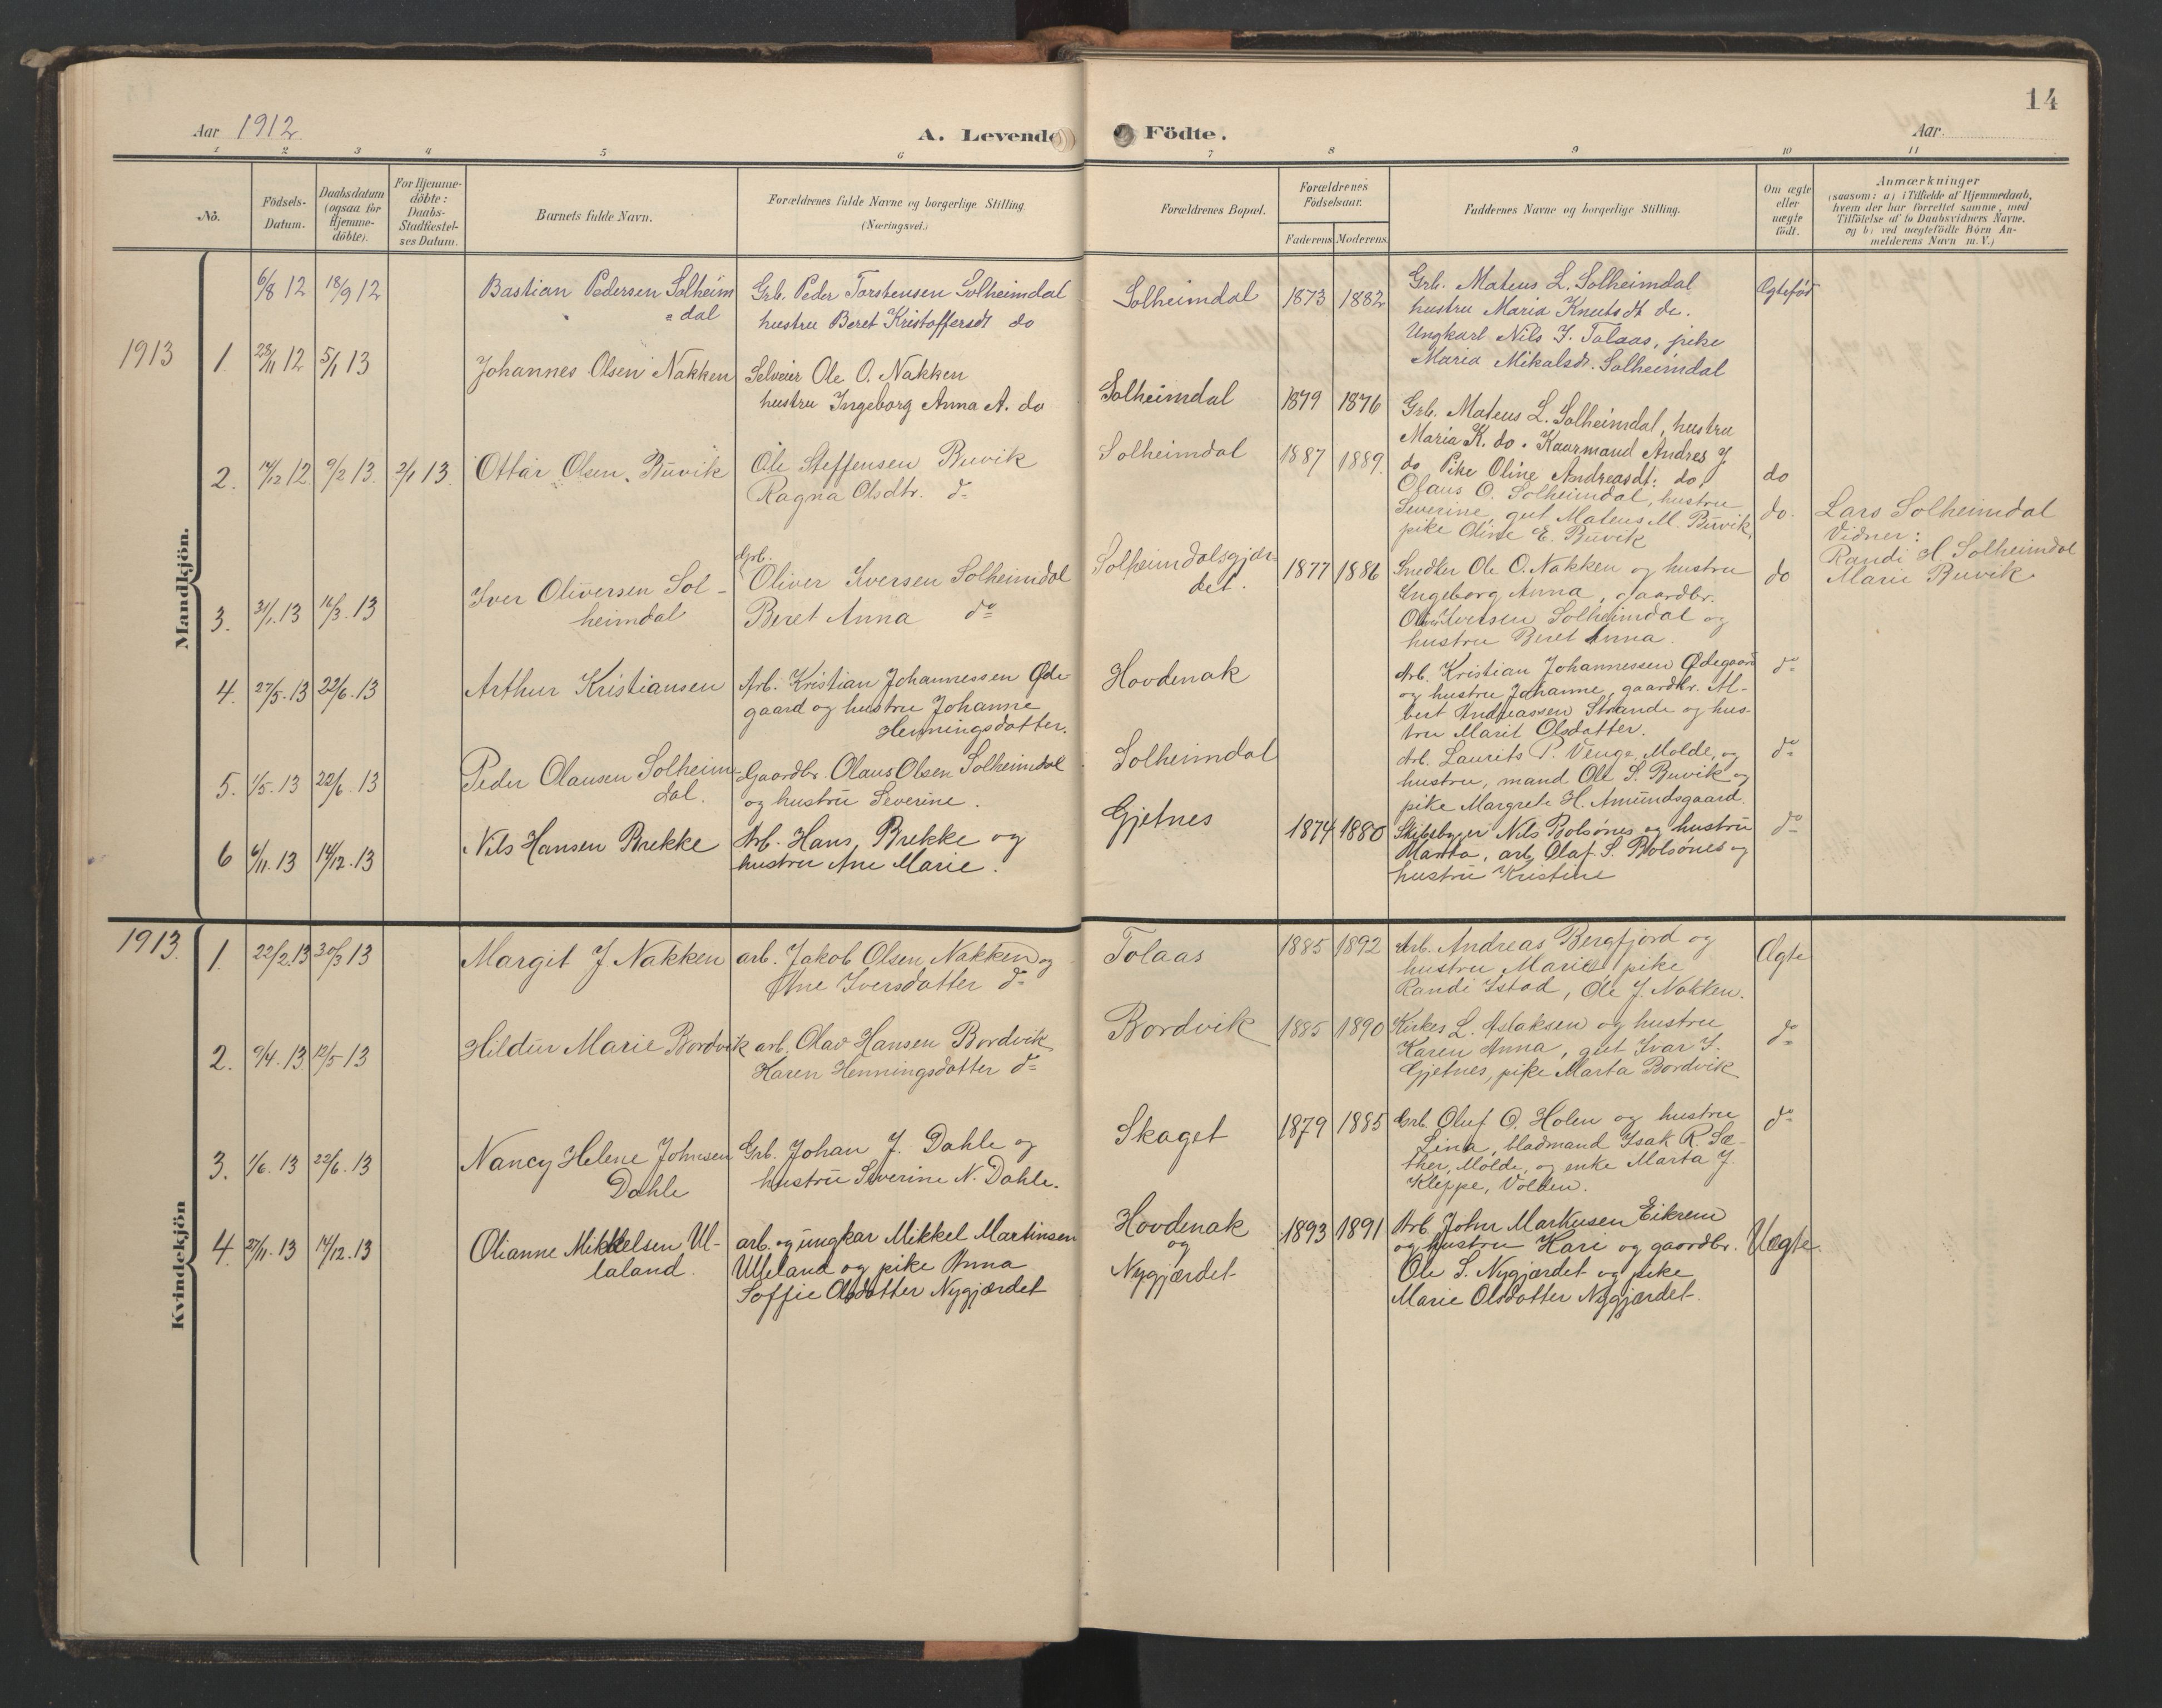 14
Aar 1912.
A. Levende Födte.
Aar
1 2 3 4 5 6 7 8 9 10 11
No.
Födsels-
Datum.
Daabsdatum
(ogsaa for
Hjemme-
döbte).
For Hjemme-
döbte:
Daabs-
Stadfæstel-
ses Datum.
Barnets fulde Navn.
Forældrenes fulde Navne og borgerlige Stilling
(Næringsvei.)
Forældrenes Bopæl.
Forældrenes
Födselsaar.
Faderens Moderens
Faddernes Navne og borgerlige Stilling.
Om ægte
eller
uægte
födt.
Anmærkninger
(saasom: a) i Tilfælde af Hjemmedaab,
hvem der har forrettet samme, med
Tilföielse af to Daabsvidners Navne,
og b) ved uægtefödte Börn An-
melderens Navn m. V.)
Mandkjön.
6/8 12 18/9 12 Bastian Pedersen Solheim
dal
Grb. Peder Torstensen Solheimdal
hustru Beret Kristoffersdt do
Solheimdal 1873 1882
Grb. Mateus L. Solheimdal
hustru Maria Knutsdt do.
Ungkarl Nils J. Tolaas, pike
Maria Mikalsdt. Solheimdal
Ægtefød
1913 1. 23/11 12 5/1 13 Johannes Olsen Nakken
Selveier Ole O. Nakken
hustru Ingeborg Anna A. do
Solheimdal 1879 1876
Grb. Mateus L. Solheimdal, hustru
Maria K. do. Kaarmand Andres J.
do Pike Oline Andreasdt: do.
do
2. 14/12 12. 9/2 13. 2/1 13. Ottar Olsen Buvik
Ole Steffensen Buvik
Ragna Olsdtr. do
Solheimdal 1887 1889.
Olaus O. Solheimdal, hustru
Severine, gut Mateus M. Buvik,
pike Oline E. Buvik
do.
Lars Solheimdal
Vidner:
Randi H. Solheimdal
Marie Buvik
3. 31/1. 13 16/3. 13 Iver Oliversen Sol-
heimdal
Grb.
Oliver Iversen Solheimdal
Beret Anna do
Solheimdalsgjær-
det. 1877 1886
Snedker Ole O. Nakken og hustru
Ingeborg Anna, gaardbr.
Oliver Iversen Solheimdal og
hustru Beret Anna.
do
4. 27/5. 13 22/6. 13 Arthur Kristiansen
Arb. Kristian Johannessen Øde
gaard og hustru Johanne
Henningsdatter.
Hovdenak
Arb. Kristian Johannessen Ødegaard
og hustru Johanne, gaardbr. Al-
bert Andreassen Strande og hus-
tru Marit Olsdatter.
do
5. 1/5. 13 22/6. 13 Peder Olausen Solheim-
dal.
Gaardbr. Olaus Olsen Solheimdal
og hustru Severine.
Solheimdal
Arb. Laurits P. Venge, Molde, og
hustru, mand Ole S. Buvik og
pike Margrete H. Amundsgaard.
do
6 6/11. 13 14/12. 13 Nils Hansen Brekke
Arb. Hans Brekke og
hustru Ane Marie.
Gjetnes 1874 1880
Skibsbyger Nils Bolsønes og hustru
Marta, arb. Olaf S. Bolsønes og
hustru Kristine
do
Kvindekjön
1913. 1. 22/2. 13 30/3 13 Margit J. Nakken
arb. Jakob Olsen Nakken og
Ane Iversdatter do
Tolaas 1885 1892
Arb. Andreas Bergfjord og
hustru Marie pike
Randi Istad, Ole J. Nakken.
Ægte
2. 9/4. 13. 12/5 13 Hildur Marie Bordvik
arb. Olav Hansen Bordvik
Karen Henningsdatter do
Bordvik 1885 1890
Kirkes L. Aslaksen og hustru
Karen Anna, gut Ivar I.
Gjetnes, pike Marta Bordvik
do
3. 1/6. 13 22/6. 13 Nancy Helene Johnsen
Dahle
Grb. Johan J. Dahle og
hustru Severine N. Dahle.
Skaget 1879 1885
Grb. Oluf O. Holen og hustru
Lina, bladmand Isak R. Sæ-
ther, Molde, og enke Marta J.
Kleppe, Volden.
do
4. 27/11. 13 14/12. 13 Olianne Mikkelsen Ul-
laland.
arb. og ungkar Mikkel Martinsen
Ulleland og pike Anna
Soffie Olsdatter Nygjærdet
Hovdenak
og
Nygjærdet 1893 1891
Arb. John Markusen Eikrem
og hustru Kari og gaardbr.
Ole S. Nygjærdet og pike
Marie Olsdatter Nygjærdet.
Uægte.